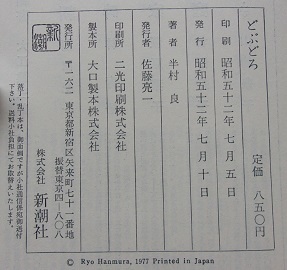 どぶどろ
定価 八五〇円
印刷 昭和五十二年七月五日
発行 昭和五十二年七月十日
著者 半村 良
発行者 佐藤亮一
印刷所 二光印刷株式会社
製本所 大口製本株式会社
発行所 〒一六二 東京都新宿区矢来町七十一番地
振替東京四-八〇八
株式会社 新潮社
落丁・乱丁本は、御面倒ですが小社通信係宛御送付
下さい。送料小社負担にてお取替えいたします。
© Ryo Hanmura, 1977 Printed in Japan